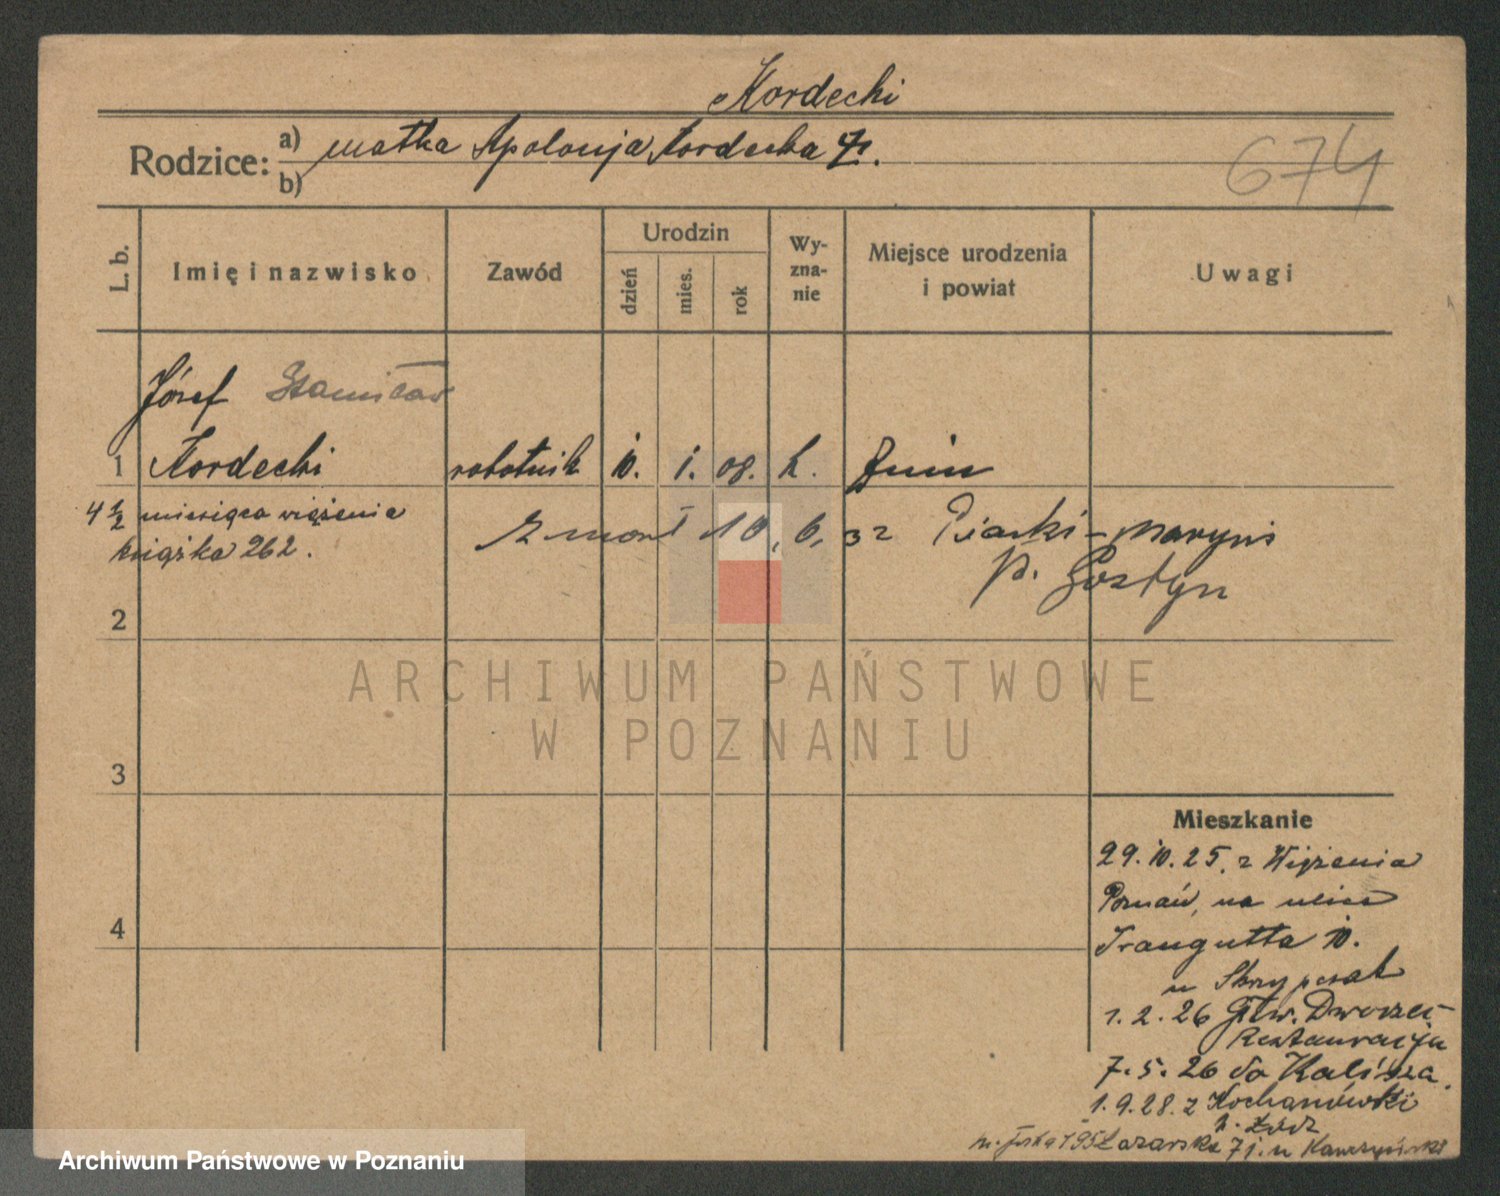 Kordecki
Rodzice: a) matka Apolonja Kordecka
b)
674
L. b.
Imię i nazwisko
Zawód
Urodzin
dzień
mies.
rok
Wy-
zna-
nie
Miejsce urodzenia
i powiat
Uwagi
Józef Stanisław
1 Kordecki robotnik 10. 1. 08. k. Żnin
4 1/2 miesiąca więzienia
książka 262.
zmarł 10, 6, 32 Piaski - Marysin
p. Gostyn
2
3
4
ARCHIWUM PAŃSTWOWE
W POZNANIU
Mieszkanie
29. 10. 25. z Więzienia
Poznań, na ulice
Traugutta 10.
u
1. 2. 26 Gł w. Dworzec
Restauracja
7. 5. 26 do Kalisza.
1. 9. 28. z Kochanówki
k. Łódz
Łazarska 7 j. u
Archiwum Państwowe w Poznaniu